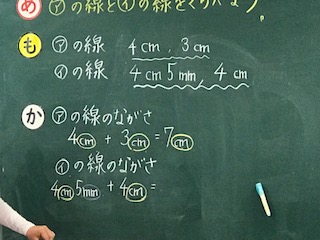 め ㋐の線と㋑の線をくらべよう。
も ㋐の線 4cm, 3cm
㋑の線 4cm5mm, 4cm
か ㋐の線のながさ
4cm + 3cm = 7cm
㋑の線のながさ
4cm5mm + 4cm =